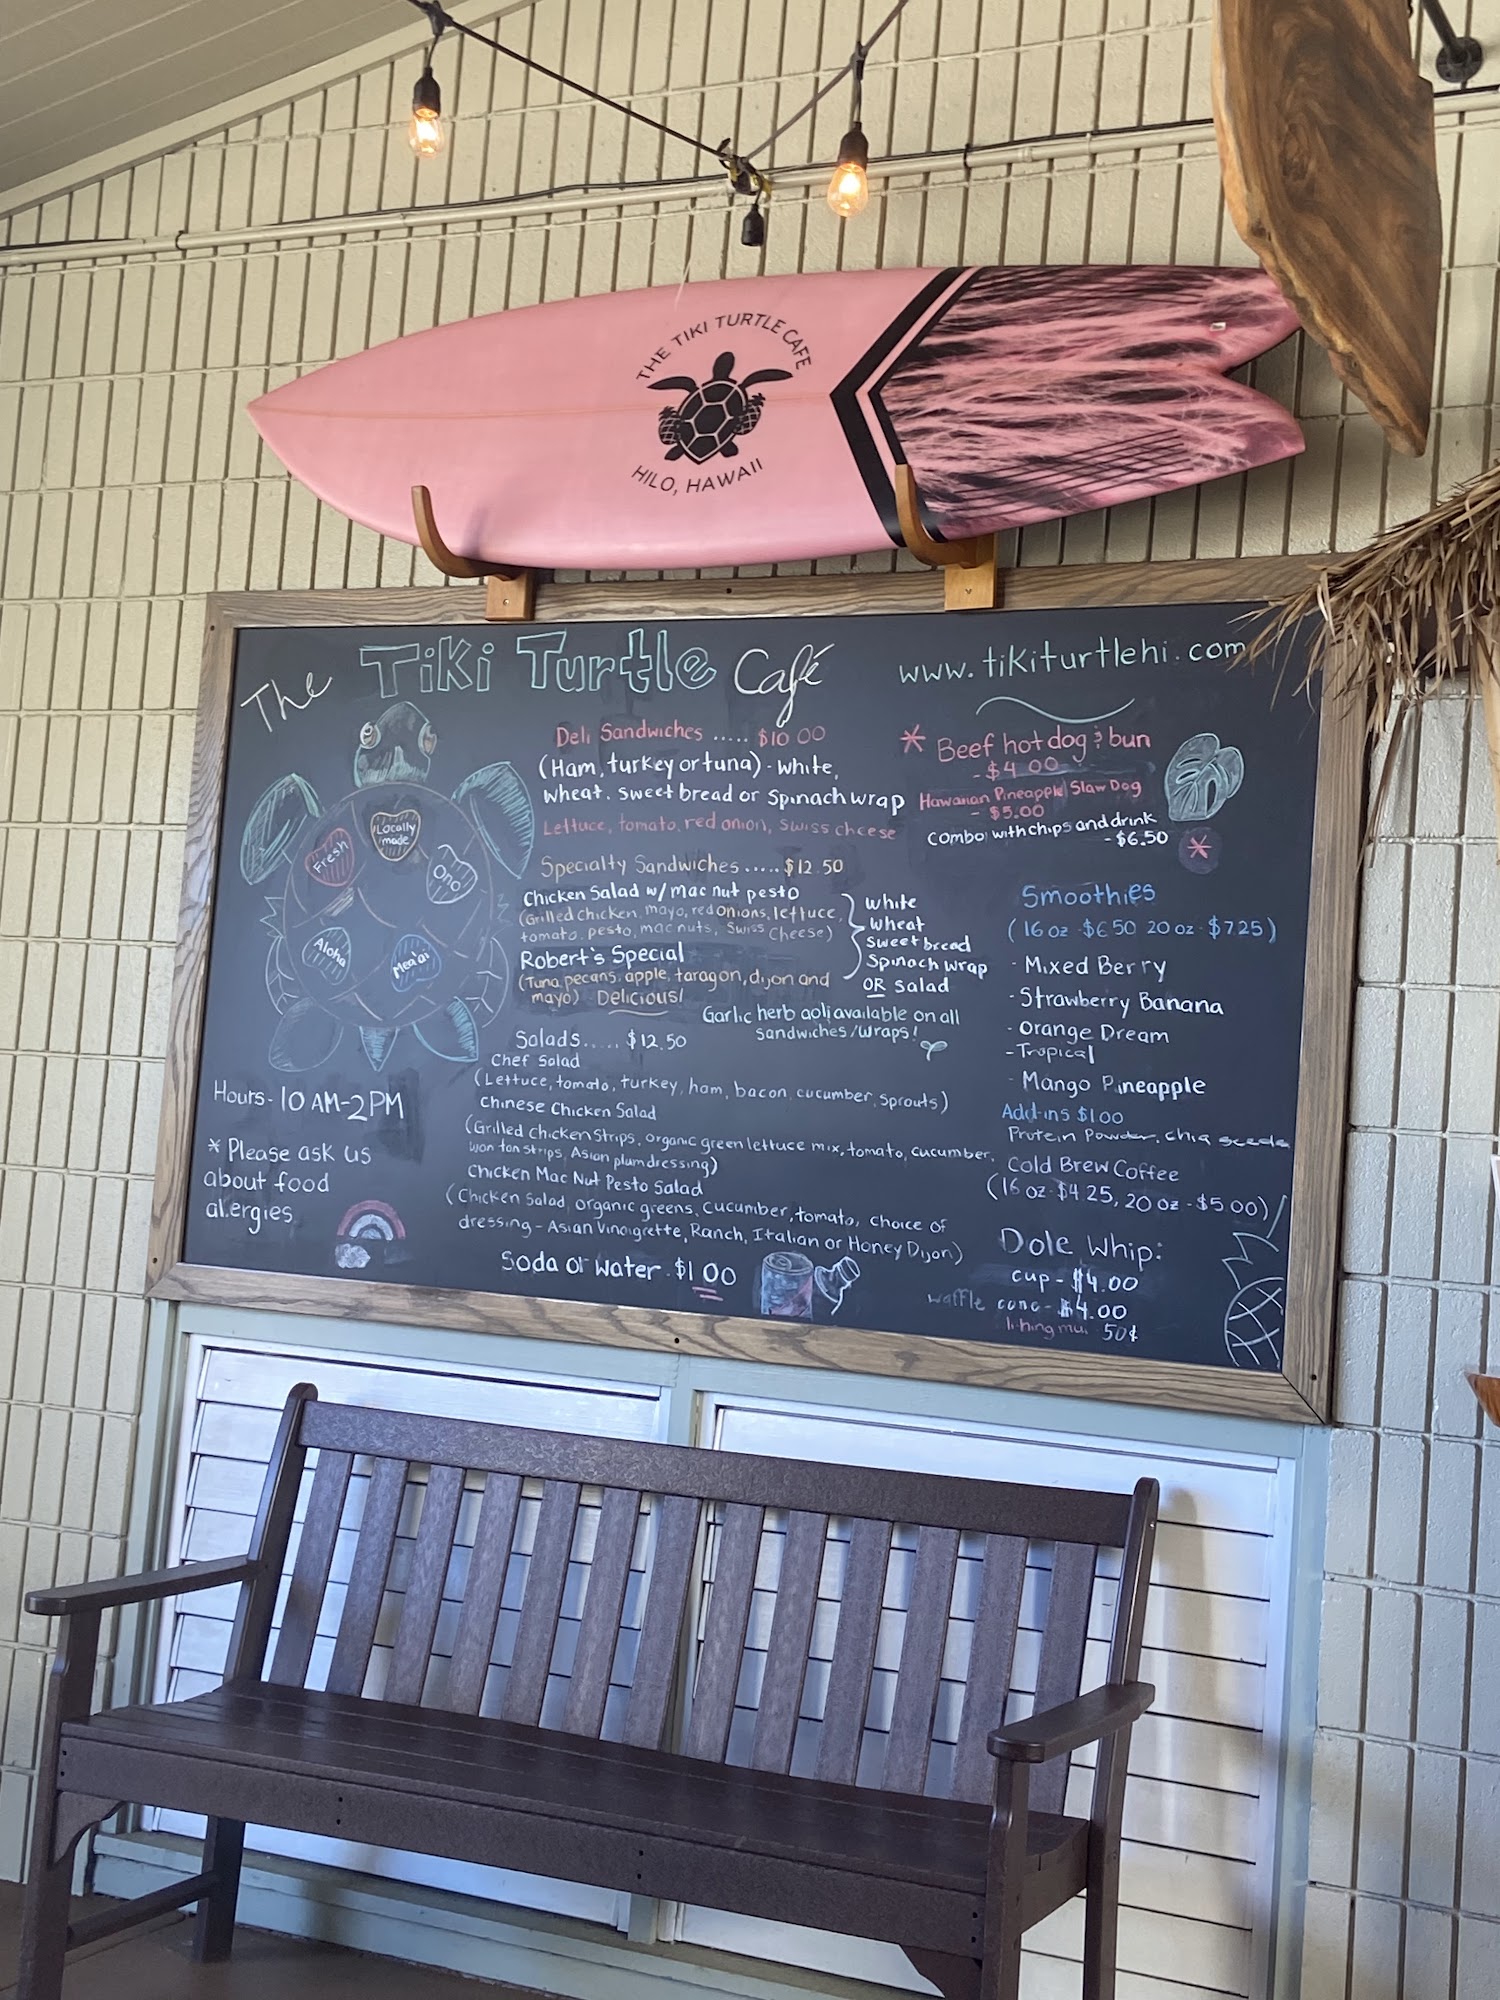 THE TIKI TURTLE CAFE
HILO, HAWAII
The Tiki Turtle Café
www.tikiturtlehi.com
Fresh
Locally made
Ono
Aloha
Mea'ai
Hours - 10 AM-2PM
* Please ask us
about food
alergies
Deli Sandwiches ..... $10 00
(Ham, turkey or tuna) - white,
wheat, sweet bread or Spinach wrap
Lettuce, tomato, red onion, swiss cheese
Specialty Sandwiches ..... $12.50
Chicken Salad w/ mac nut pesto
(Grilled chicken, mayo, red onions, lettuce,
tomato, pesto, mac nuts, Swiss Cheese)
Robert's Special
(Tuna, pecans, apple, taragon, dijon and
mayo) Delicious!
white
wheat
sweet bread
Spinach wrap
OR salad
Garlic herb aoli available on all
sandwiches/wraps!
Salads ..... $12.50
Chef Salad
(Lettuce, tomato, turkey, ham, bacon, cucumber, sprouts)
Chinese Chicken Salad
(Grilled Chicken Strips, organic green lettuce mix, tomato, cucumber,
won ton strips, Asian plum dressing)
Chicken Mac Nut Pesto Salad
(Chicken Salad, organic greens, cucumber, tomato, choice of
dressing - Asian Vinaigrette, Ranch, Italian or Honey Dijon)
Soda or water - $1.00
* Beef hot dog & bun
- $4.00
Hawaiian Pineapple Slaw Dog
- $5.00
Combo with chips and drink
- $6.50
*
Smoothies
(16 oz - $6.50 20 oz - $7.25)
- Mixed Berry
- Strawberry Banana
- Orange Dream
- Tropical
- Mango Pineapple
Add-ins $1.00
Protein Powder, chia seeds
Cold Brew Coffee
(16 oz - $4.25, 20 oz - $5.00)
Dole Whip:
cup - $4.00
waffle cone - $4.00
50¢